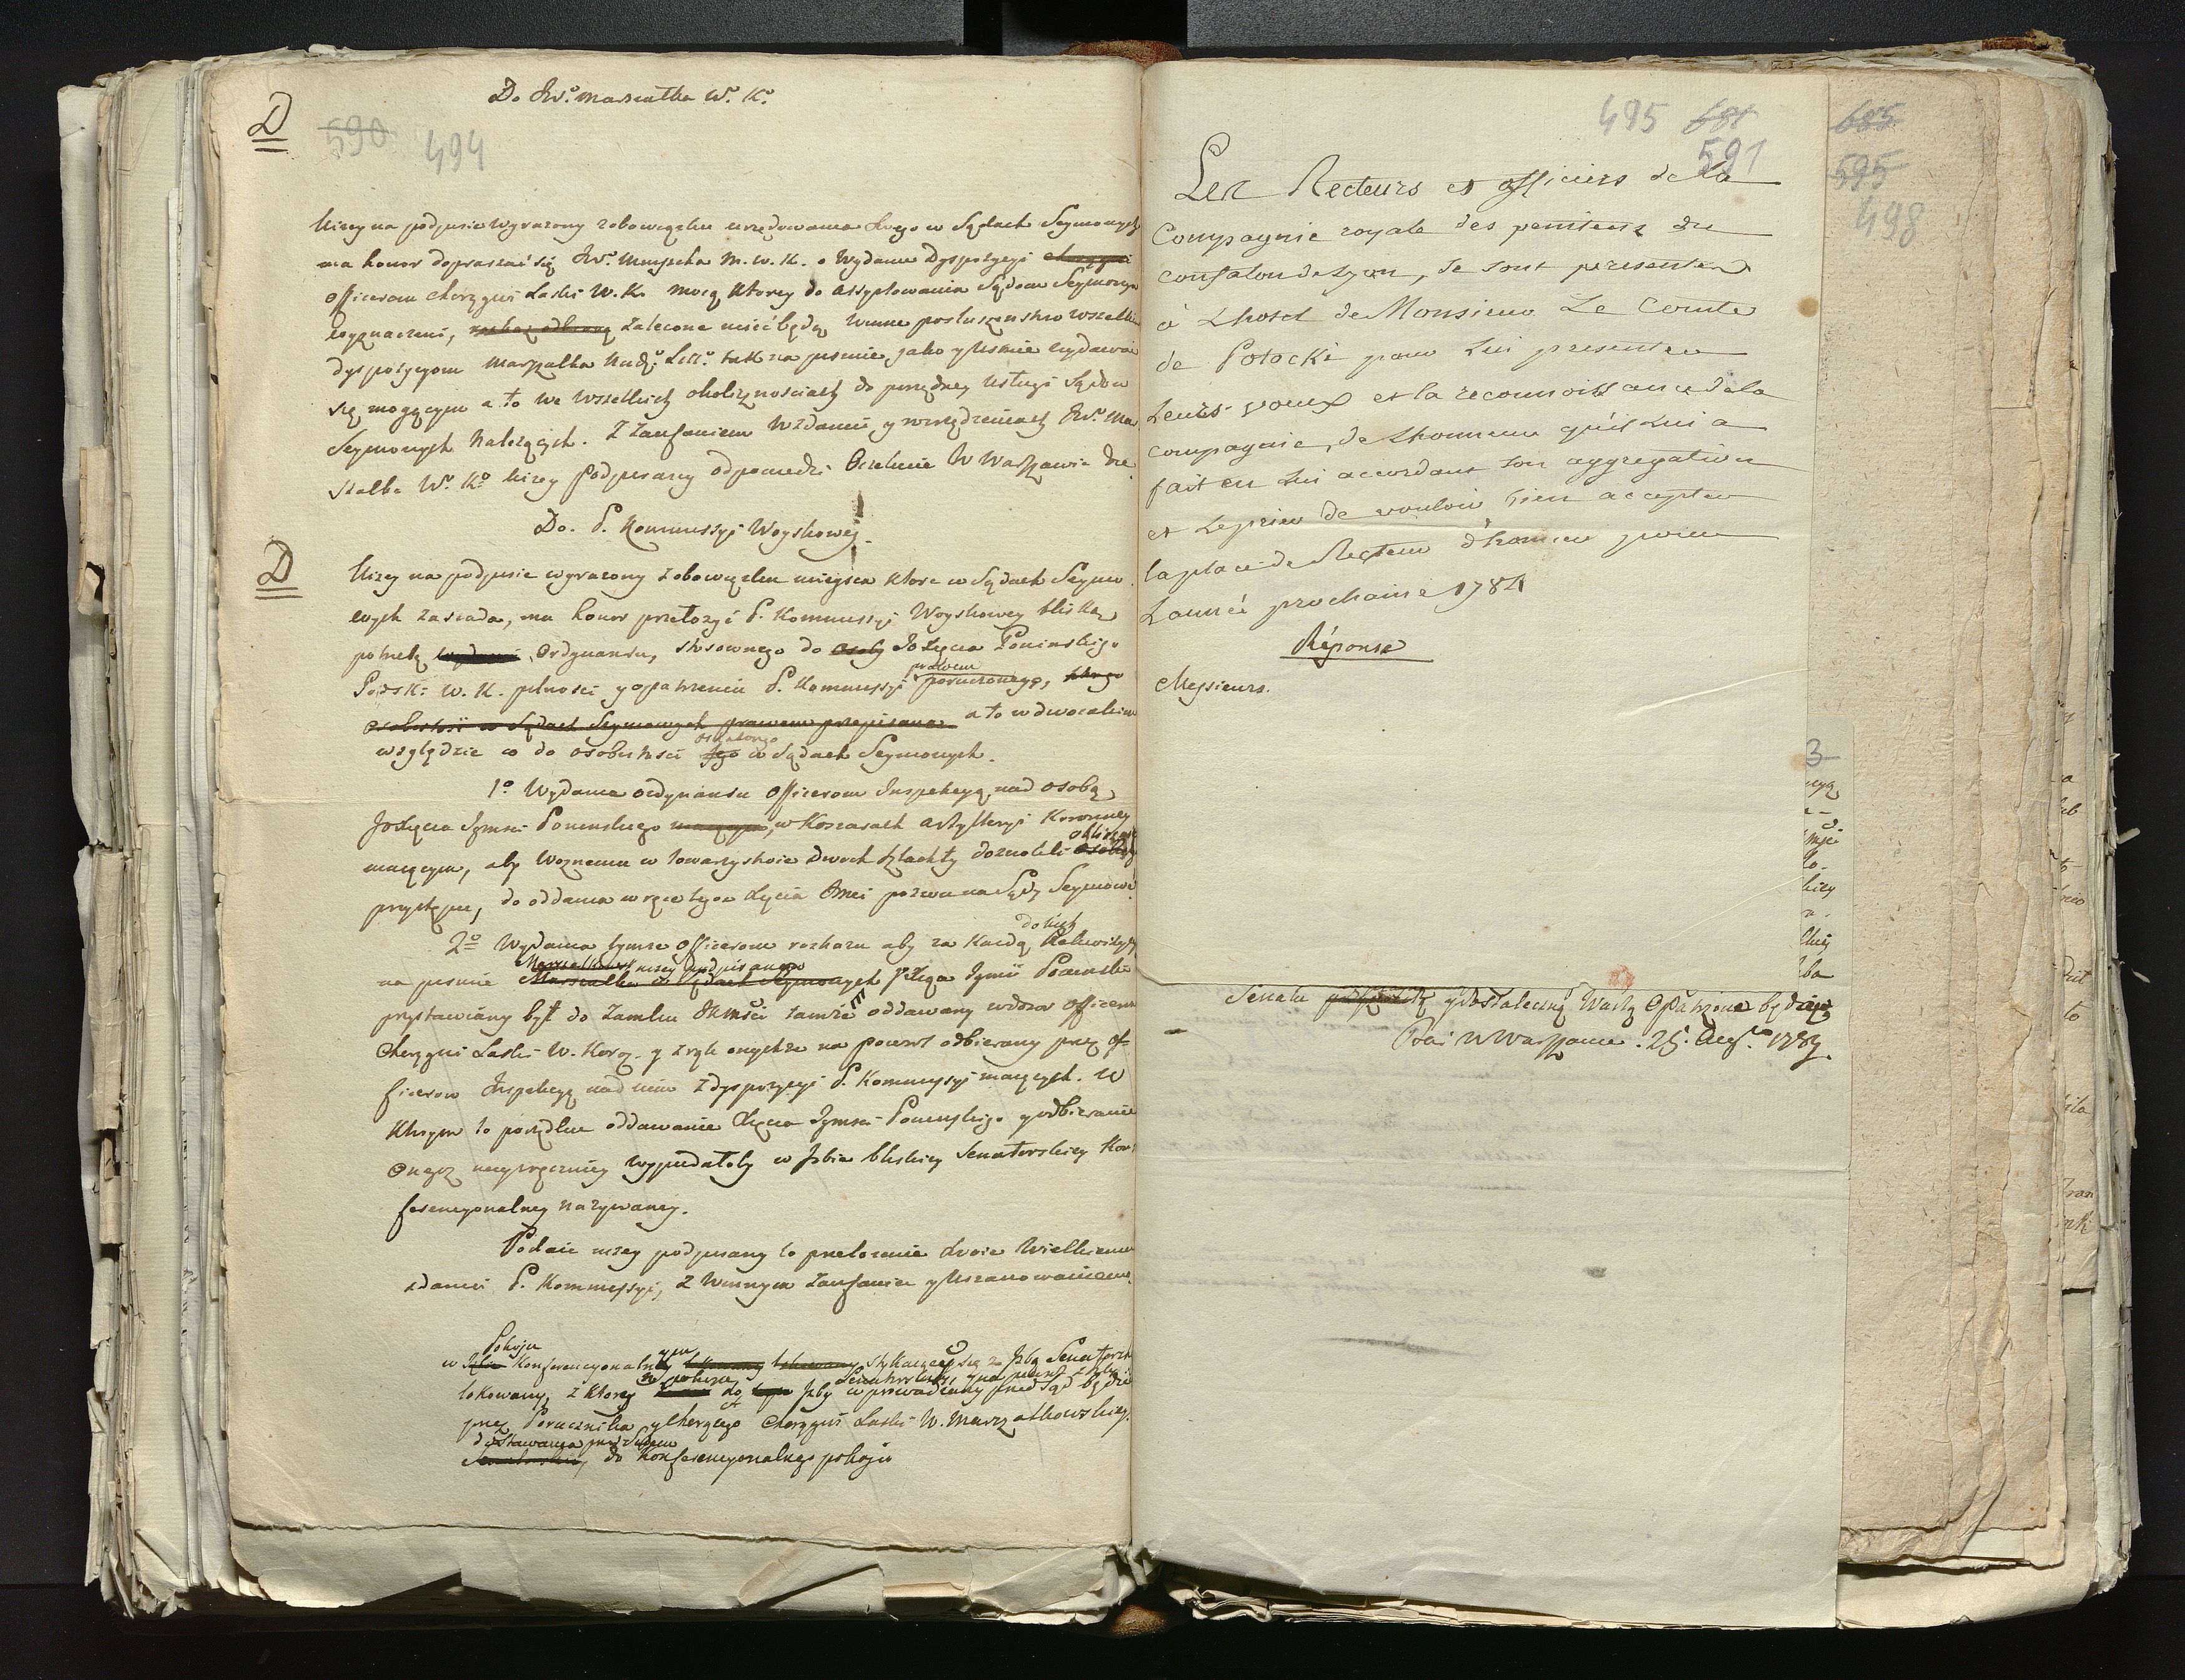 Do JW.º Marszałka W.º K.º
D
590 494
Niżey na podpisie wyrażony z obowiązku urzędowania swego w Sądach Seymowych
ma honor dopraszać się JW.º Mniszcha M. W. K. o wydanie Dyspozycyi
Officerom Chorągwi Laski W. K. mocą ktorey do assystowania Sądom Seymowym
wyznaczeni, zalecone mieć będą winne posłuszenstwo wszelkim
dyspozycyom Marszałka na piśmie jako y ustnie wydawać
się mogącym a to we wszelkich okolicznościach do porządney usługi Sądow
Seymowych należących. Z zaufaniem w zdaniu y rozrządzeniach JW.º Mar
szałka W.º K.º niżey podpisany odpowiedzi oczekuie w Warszawie die
Do P. Kommissyi Woyskowey.
D
Niżey na podpisie wyrażony z obowiązku mieysca ktore w Sądach Seymo
wych zasiada, ma honor przełożyć P. Kommissyi Woyskowey bliską
potrzebę Ordynansu, stosownego do osoby Xiążęcia Poninskiego
Podsk: W. K. pilności y opatrzeniu P. Kommissyi prawem poruczonego,
osobistości w Sądach Seymowych prawem przepisana a to w dwoiakim
względzie co do osobistości jego w Sądach Seymowych.
1º Wydania ordynansu Officerom Inspekcyą nad osobą
Xiążęcia Jmsci Poninskiego w Koszarach Artylleryi Koronney
maiącym, aby Woznemu w towarzystwie dwoch szlachty dozwolili
przystępu, do oddania w ręce tegoż Xięcia Jmci pozwu na Sądy Seymowe
2º Wydania tymże Officerom rozkazu aby za każdą do nich Rekwizycyą
na pismie niżey podpisanego Marszałka w Sądach Seymowych Xiąże Jmć Poninski
przystawiany był do Zamku tamże oddawany w dozor Officerom
Chorągwi Laski W. Kor. y z rąk onychże na powrot odbierany przez of
ficerow Inspekcyą nad nim z dyspozycyi P. Kommissyi maiących. W
ktorym to porządku oddawanie Xięcia Jmsci Poninskiego y odbieranie
onegoż nayzręczniey wypadałoby w Izbie bliskiey Senatorskiey Kon
ferencyonalney nazywaney.
Podaie niżey podpisany to przełożenie swoie Wielkiemu
zdaniu P. Kommissyi, z winnym zaufaniem y uszanowaniem.
Pokoju
w Izbie Konferencyonalnym stykaiącey się z Izbą Senatorską
lokowany, z ktorey do Izby wprowadzany przed Sąd będzie
przez Porucznika y Chorążego Chorągwi Laski W. Marszałkowskiey.
do Konferencyonalnego pokoju
495 681
591
Les Recteurs et officiers de la
Compagnie royale des penitens du
confalon de Lyon, se sont presentés
à Lhotel de Monsieur Le Comte
de Potocki pour Lui presenter
Leurs voeux et la reconnoissance de la
compagnie, de Lhonneur qu'il Lui a
fait en Lui accordant son aggregation
et Le prier de vouloir bien accepter
la place de Recteur d'honneur pour
Lanneé prochaine 1784
Réponse
Messieurs.
Senatu y dostateczną Wartą opatrzone będzie
Dan w Warszawie. 25. Aug. 1789.
685
595
498